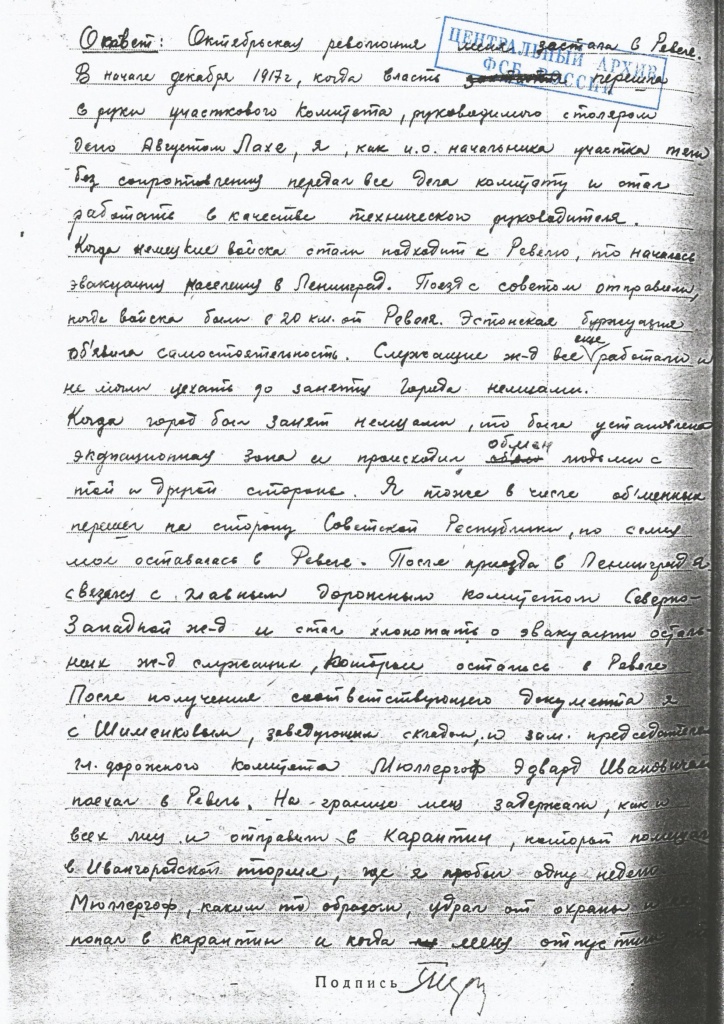 Ответ: Октябрьская революция меня застала в Ревеле.
ЦЕНТРАЛЬНЫЙ АРХИВ
ФСБ РОССИИ
В начале декабря 1917г, когда власть перешла
в руки участкового Комитета, руководимого столяром
Депо Августом Лахе, я, как и.о. начальника участка тяги
без сопротивления передал все дела комитету и стал
работать в качестве технического руководителя.
Когда немецкие войска стали подходит к Ревелю, то началась
эвакуация населения в Ленинград. Поезд с советом отправили,
когда войска были в 20 км. от Ревеля. Эстонская буржуазия
об'явила самостоятельность. Служащие ж-д все еще работали и
не могли уехать до занятия города немцами.
Когда город был занят немцами, то была установлена
зона и происходил обмен людьми с
той и другой стороны. Я тоже в числе об'менных
перешел на сторону Советской Республики, но семья
моя оставалась в Ревеле. После приезда в Ленинград я
связался с главным дорожным комитетом Северо-
Западной ж-д и стал хлопотать о эвакуации осталь-
ных ж-д служащих, которые остались в Ревеле
После получения соответствующего документа я
с Шиманковым, заведующим складом, и зам. председателя
гл. дорожного комитета Мюллергоф Эдвард Ивановичем
поехал в Ревель. На границе меня задержали, как и
всех лиц и отправили в карантин, который помещал
в Ивангородской тюрьме, где я пробыл одну неделю
Мюллергоф, каким то образом, удрал от охраны и
попал в карантин и когда меня отпустили
Подпись